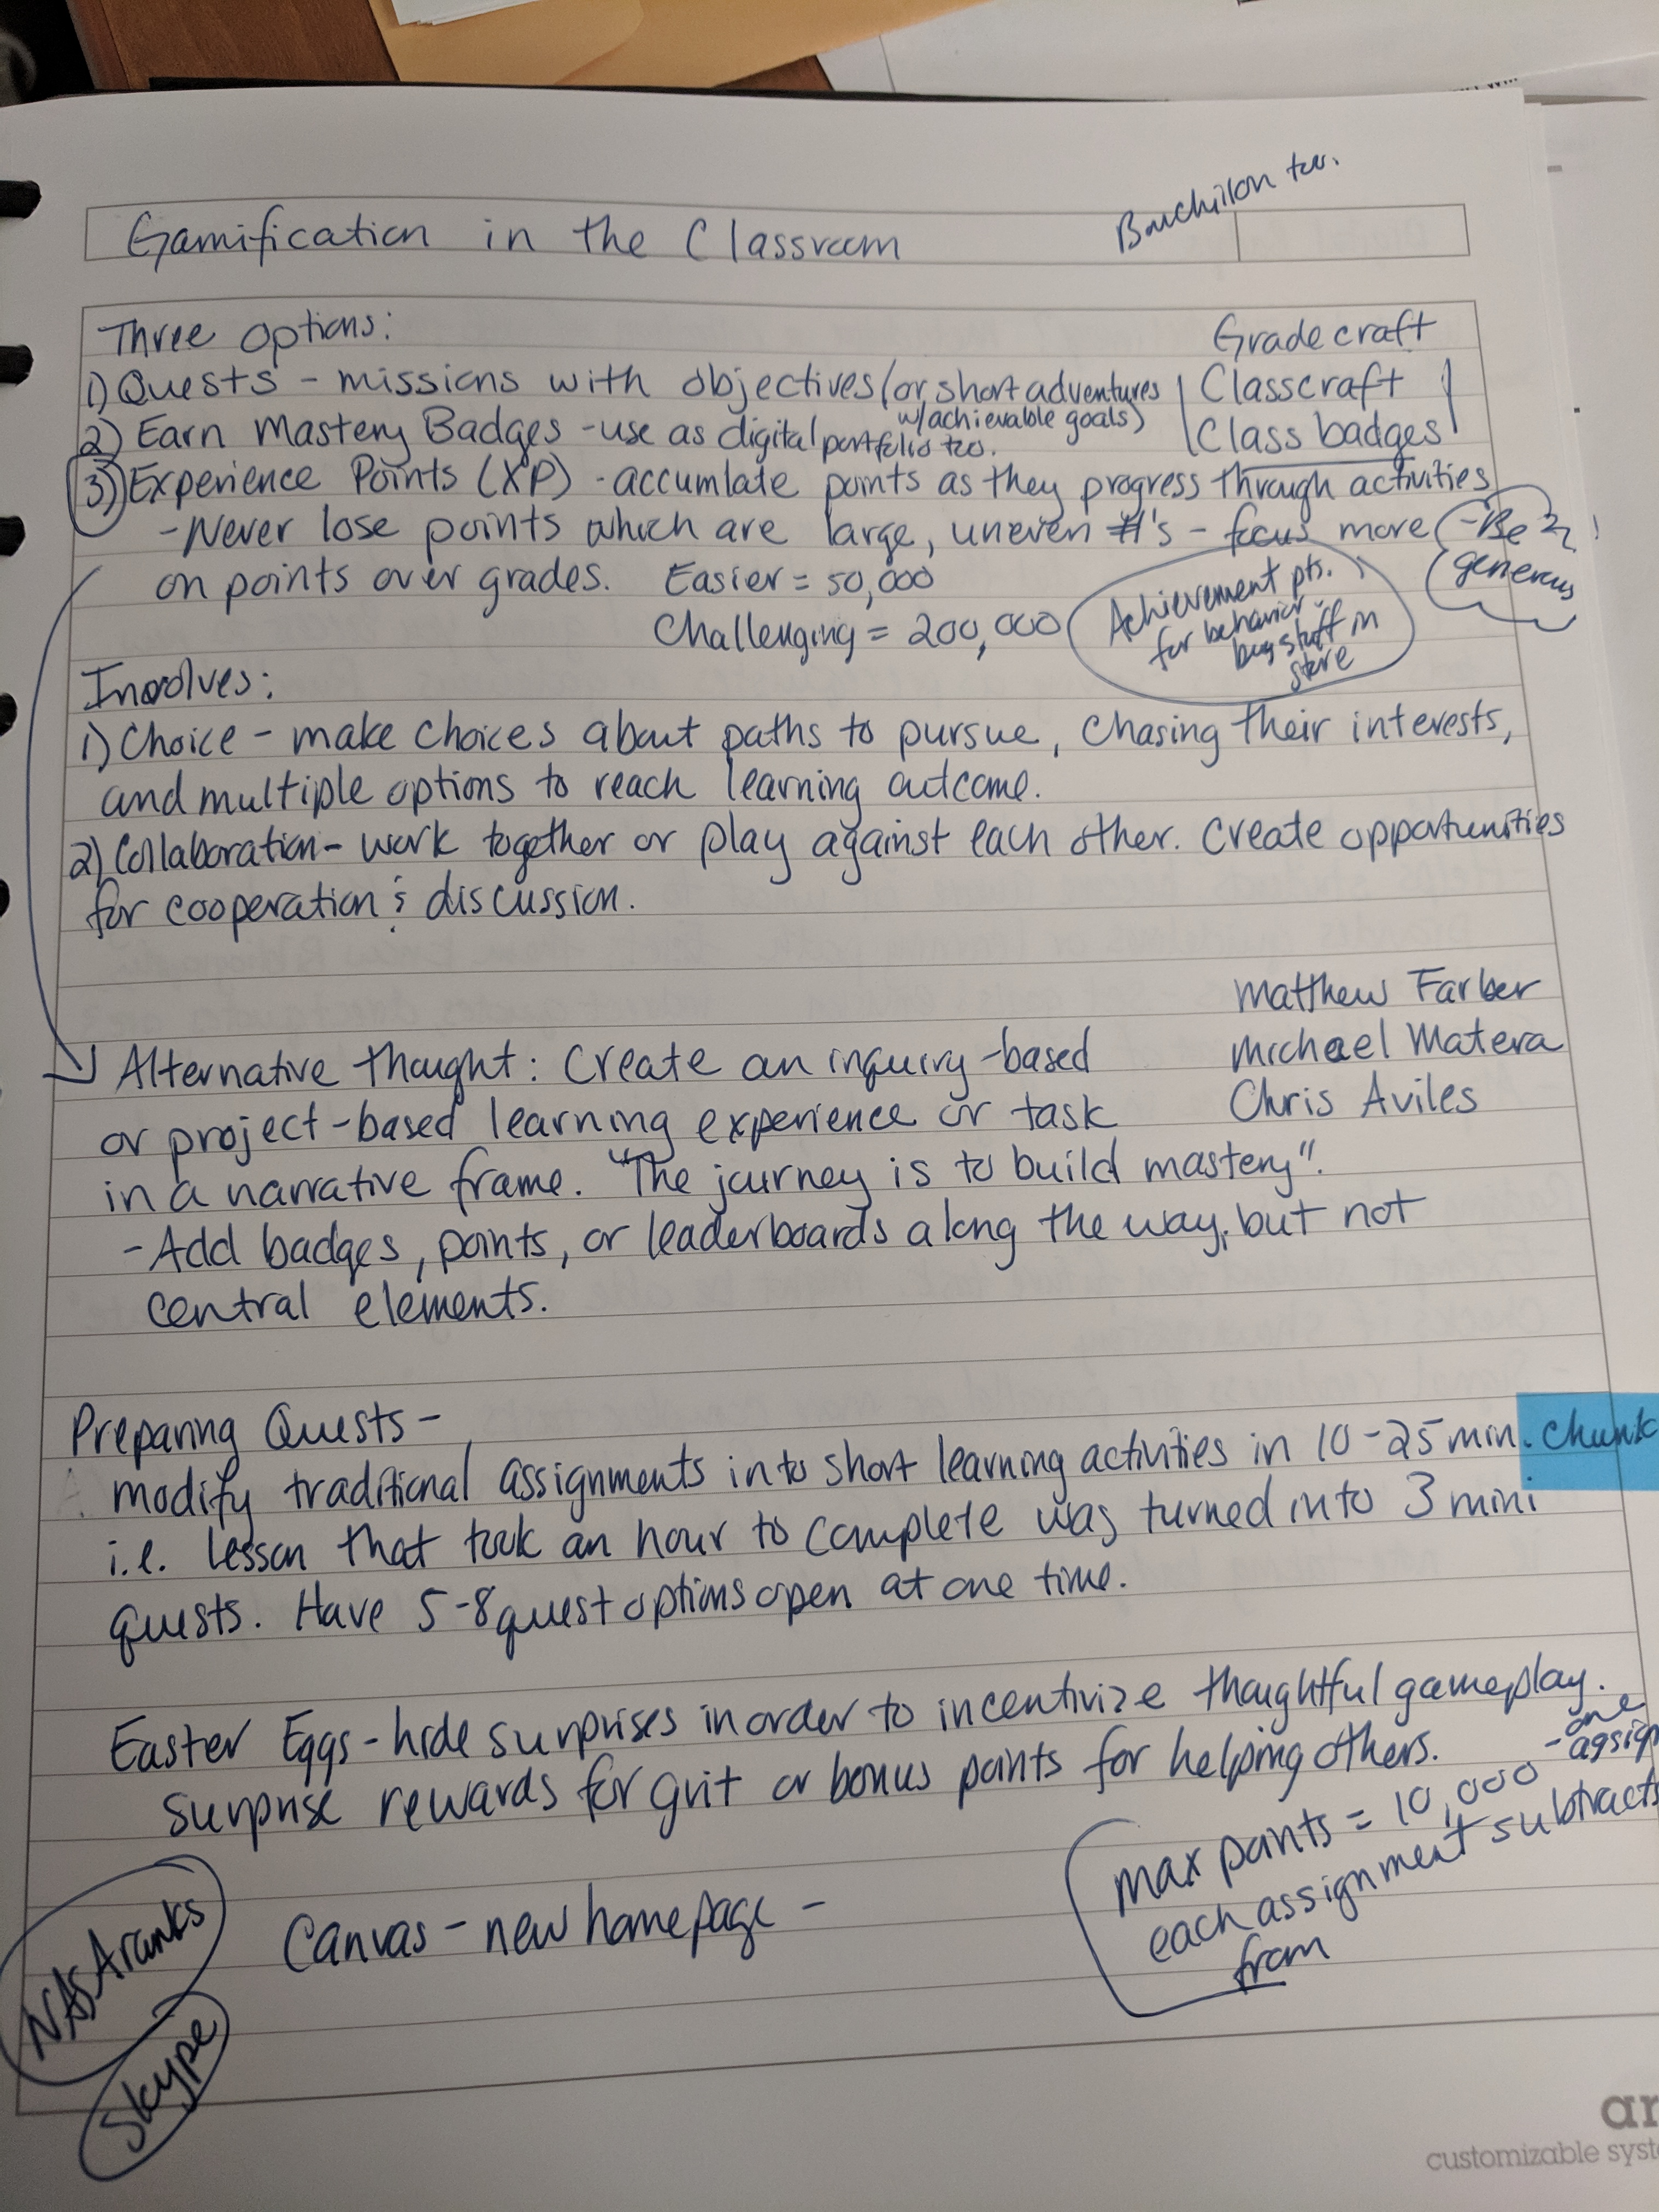 Gamification in the Classroom
Three Options:
Gradecraft
1) Quests - missions with objectives (or short adventures
w/achievable goals)
Classcraft
2) Earn Mastery Badges - use as digital portfolio too.
Class badges
3) Experience Points (XP) - accumlate points as they progress through activities
- Never lose points which are large, uneven #'s - focus more
on points over grades. Easier = 50,000
Challenging = 200,000
- Be
generous
Achievement pts.
for behavior -
buy stuff in
store
Involves:
1) Choice - make choices about paths to pursue, chasing their interests,
and multiple options to reach learning outcome.
2) Collaboration - work together or play against each other. Create opportunities
for cooperation & discussion.
Matthew Farber
Michael Matera
Chris Aviles
Alternative thought: Create an inquiry-based
or project-based learning experience or task
in a narrative frame. "The journey is to build mastery".
- Add badges, points, or leaderboards along the way, but not
central elements.
Preparing Quests -
modify traditional assignments into short learning activities in 10-25 min. chunk
i.e. lesson that took an hour to complete was turned into 3 mini
quests. Have 5-8 quest options open at one time.
Easter Eggs - hide surprises in order to incentivize thoughtful gameplay.
surprise rewards for grit or bonus points for helping others.
max points = 10,000 - one
assign
each assignment subtracts
from
Canvas - new homepage -
NASA ranks
Skype
ar
customizable syste